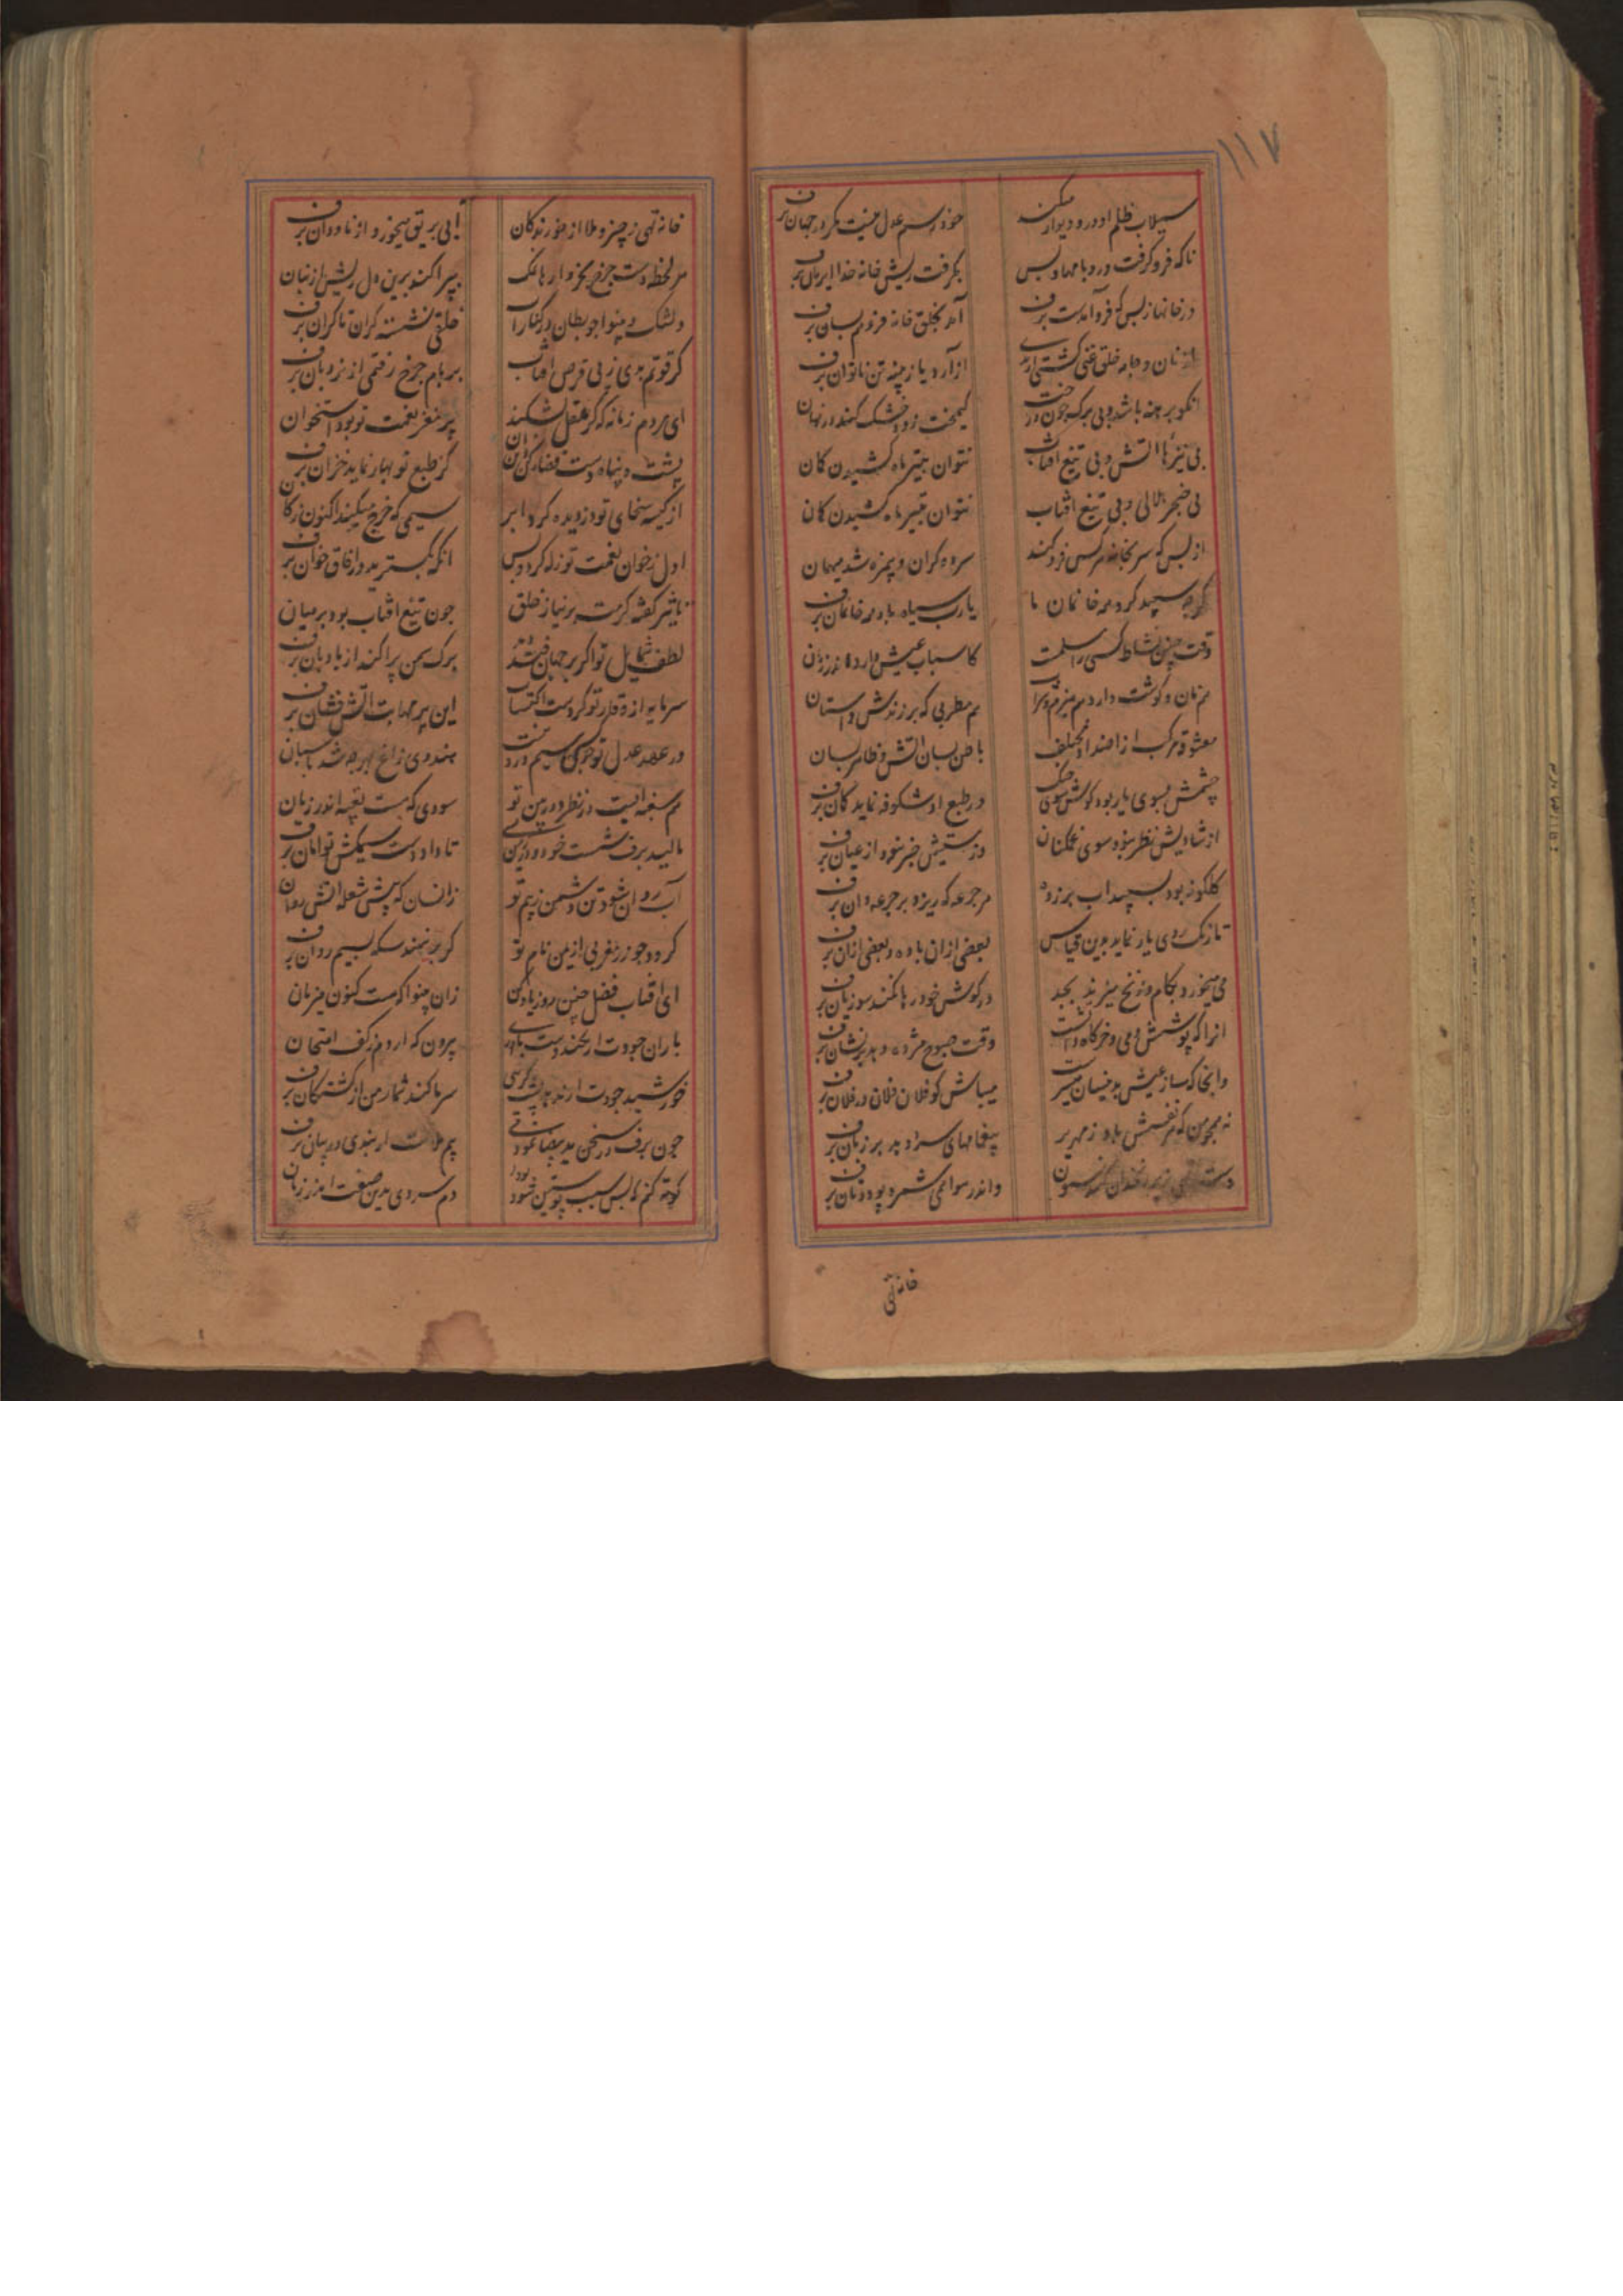 ۱۱۷
سیلاب ظلم او در و دیوار میکند
خود رسم عدل نیست مگر در جهان برف
ناگه فرو گرفت در و بامها و بس
بگرفت ریش خانه خدا ایرمان برف
در خانها ز بس که فرو آمدست برف
آمد بخلق خانه فروهم بسان برف
از نان و جامه خلق غنی گشتی ار بدی
از آرد یا ز پنبه تن ناتوان برف
انکو برهنه باشد و بی برگ چون درخت
کیمخت زود خشک کند در نهان
بی نیزها آتش و بی تیغ آفتاب
نتوان بتیر ماه کشیدن کمان
بی خنجر بلالی و بی تیغ افتاب
نتوان بتیر ماه کشیدن کمان
از بس که سر بخانه هر کس فرو کند
سرد و گران و بیمزه شد میهمان
گرچه سپید کرد همه خانمان ما
یا رب سیاه باد همه خانمان برف
وقت چنین نشاط کسی را مسلمست
کاسباب عیش دارد اندر زمان
هم نان و گوشت دارد و هم هیزم و شراب
هم مطربی که بر زندش داستان
معشوقه مرکب از اضداد مختلف
باطن بسان آتش و ظاهر بسان
چشمش بسوی یار بود گوش سوی چنگ
در طبع او شکوفه نماید کمان برف
از شادیش نظر نبود سوی غمگنان
وز مستیش خبر نبود از عیان برف
گلگونه بود بسپیداب بر زده
هر جرعه که ریزد بر جرعه دان برف
تا رنگ روی یار نماید بدین قیاس
بعضی ازان باده و بعضی ازان برف
می میخورد بکام و زنخ میزند بجد
در گوش خود رها نکند سوزیان برف
انرا که پوشش و می و خرگاه و آتشست
وقت صبوح مژده دهد بر نشان برف
وانجا که ساز عیش بدینسان میسرست
میباش گو فلان فلان در فلان برف
نه همچو من که هر نفسش باد زمهریر
پیغامهای سرد دهد بر زبان برف
دست تهی بزیر زنخدان کند ستون
واندر سوای شمره بود و نان برف
خانه تهی
خانه تهی ز چیز و ملا از خورندگان
آبی بریق میخورد از ناودان برف
هر لحظه دست چرخ بخروارها نمک
بپراکند برین دل ریش از نهان
دلتنگ و بینوا چو بطان در کنار آب
خلقی نشسته گران تا گران برف
گر قوتم بدی ز پی قرص آفتاب
بر بام چرخ رفتمی از نردبان برف
ای مردم زمانه که گر عقل بشکند
پر مغز نعمت تو بود استخوان
پشت و پناه دست قضا در گران
گر طبع تو بهار نماید خزان برف
از کیسه سخای تو دزدیده کرد ابر
سیمی که خرج میکند اکنون ز کان
اول ز خوان نعمت تو زله کرد و بس
انگه بگسترید در افاق خوان برف
تاثیر کفشه کرمت بر نیاز خلق
چون تیغ افتاب بود بر میان
لطف شمایل تو اگر بر جهان فتد
برگ سمن پراکند از بادبان برف
سرمایه از وقار تو کردست اکتساب
این پر مهابت آتش فشان برف
در عهد عدل تو چو سیم
هندوی زاغ بهر چه شد پاسبان
هم سغبه ایست در نظر دوربین تو
سودی که هست تعبیه اندر زیان
مالید برف شست خود
تا داد دست سیمکش توامان برف
آب روان شود تن دشمن ز بیم تو
زانسان که پیش شعله آتش روان
گردد چو زر مغربی از یمن نام تو
گر بر نهند سکه بسیم روان برف
ای افتاب فضل چنین روز یاد کن
زان بینوا که هست کنون میزبان
باران جودت ار بکند دست یاوری
بیرون که آردم ز کف امتحان
خورشید جودت ار ندهد پشت گرمی
سرما کند شمار من از کشتگان برف
چون برف در سخن ید بیضا نمود
بیم ملالت ار نبدی در بیان برف
کوته کنم که بس سبب پوستین بود
دم سردی بدین صفت اندر زمان